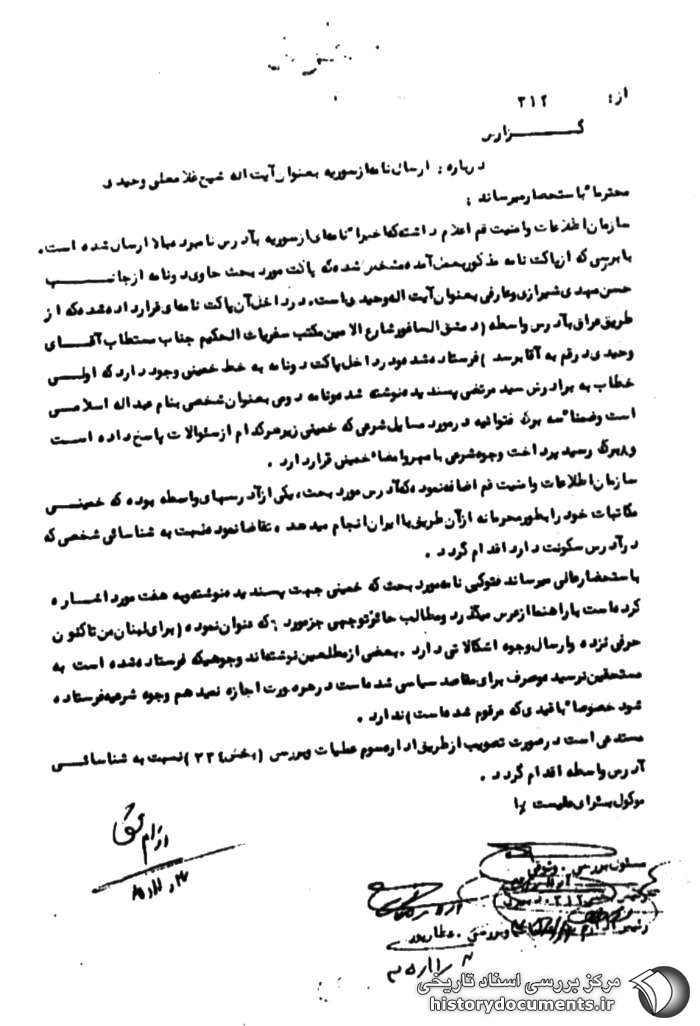 از: ۳۱۲
گزارش
درباره: ارسال نامه از سوریه بعنوان آیت اله شیخ غلامعلی وحیدی
محترما" باستحضار میرساند:
سازمان اطلاعات و امنیت قم اعلام داشته که اخیرا" نامه‌ای از سوریه بآدرس نامبرده بالا ارسال شده است.
با بررسی که از پاکت نامه مذکور بعمل آمده مشخص شده که پاکت مورد بحث حاوی دو نامه از جانب
حسن مهدی شیرازی و عارفی بعنوان آیت اله وحیدی است. در داخل آن پاکت نامه‌ای قرار داده شده که از
طریق عراق بآدرس واسطه (دمشق الصاغور شارع الامین مکتب سفریات الحکیم جناب مستطاب آقای
وحیدی در قم به آقا برسد) فرستاده شده و در داخل پاکت دو نامه به خط خمینی وجود دارد که اولی
خطاب به برادرش سید مرتضی پسندیده نوشته شده و نامه دومی بعنوان شخصی بنام عبداله اسلامی
است و ضمنا" سه برگ فتوائیه در مورد مسایل شرعی که خمینی زیر هر کدام از سئوالات پاسخ داده است
و ۸ برگ رسید پرداخت وجوه شرعی با مهر و امضاء خمینی قرار دارد.
سازمان اطلاعات و امنیت قم اضافه نموده که آدرس مورد بحث، یکی از آدرسهای واسطه بوده که خمینی
مکاتبات خود را بطور محرمانه از آن طریق با ایران انجام میدهد و تقاضا نموده نسبت به شناسائی شخصی که
در آدرس سکونت دارد اقدام گردد.
باستحضار عالی میرساند فتوکپی نامه مورد بحث که خمینی جهت پسندیده نوشته و به هفت مورد اشاره
کرده است با راهنما از عرض میگذرد و مطالب حائز توجهی جز مورد : که عنوان نموده (برای لبنان من تاکنون
حرفی نزده و ارسال وجوه اشکالاتی دارد. بعضی از مطلعین نوشته‌اند وجوهیکه فرستاده شده است به
مستحقین نرسیده و صرف برای مقاصد سیاسی شده است در هر صورت اجازه نمیدهم وجوه شرعیه فرستاده
شود خصوصا" با قیدی که مرقوم شده است) ندارد.
مستدعی است در صورت تصویب از طریق اداره سوم عملیات و بررسی (بخش ۳۳۴) نسبت به شناسائی
آدرس واسطه اقدام گردد.
موکول برای عالیست
مسئول بررسی. وثوقی
رئیس بخش ۳۱۲.
رئیس اداره یکم عملیات و بررسی. عطارپور
مرکز بررسی اسناد تاریخی
historydocuments.ir